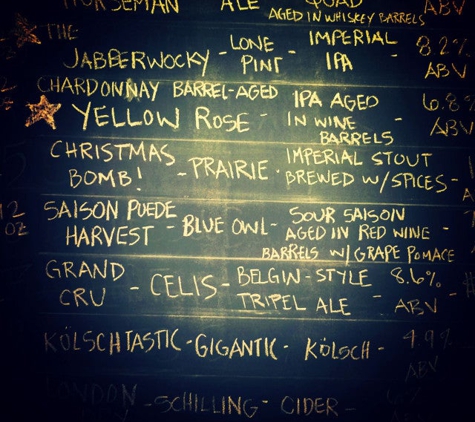 HORSEMAN ALE QUAD ABV
AGED IN WHISKEY BARRELS
THE JABBERWOCKY - LONE PINT - IMPERIAL IPA 8.2% ABV
CHARDONNAY BARREL-AGED YELLOW ROSE - IPA AGED IN WINE BARRELS - 6.8 ABV
CHRISTMAS BOMB! - PRAIRIE - IMPERIAL STOUT BREWED W/SPICES -
12 OZ SAISON PUEDE HARVEST - BLUE OWL - SOUR SAISON AGED IN RED WINE - BARRELS W/GRAPE POMACE
GRAND CRU - CELIS - BELGIN-STYLE TRIPEL ALE - 8.6% ABV -
KÖLSCHTASTIC - GIGANTIC - KÖLSCH - 4.9% ABV
LONDON - SCHILLING - CIDER -